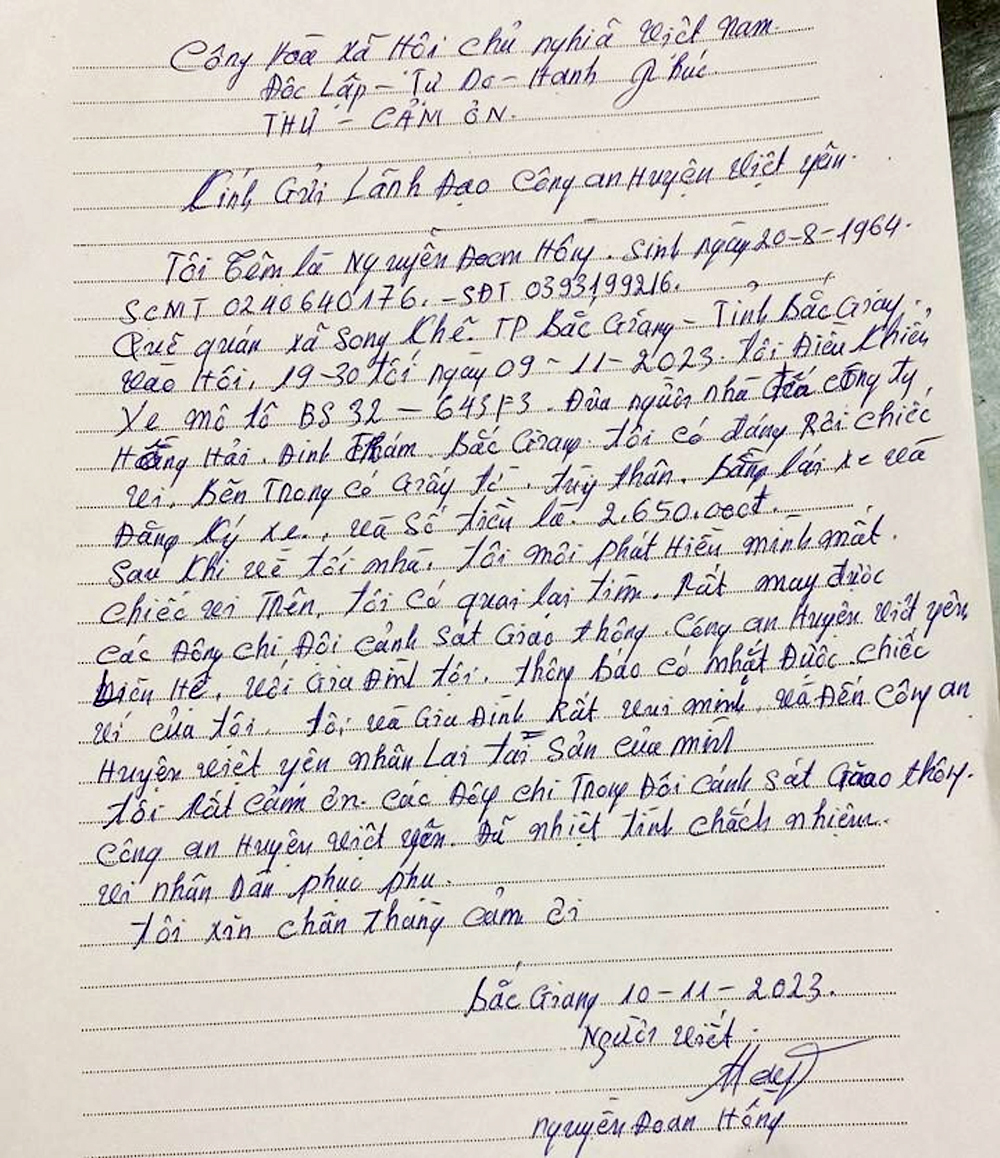 Công Hoà Xã Hôi Chủ nghiã Việt Nam.
Đôc Lập - Tự Do - Hạnh Phúc.
THƯ - CẢM ƠN.
Kính Gửi Lãnh Đạo Công an Huyện Việt yên.
Tôi têm là Nguyễn Đoan Hồng. Sinh ngày 20-8-1964.
SCMT 0240640176. - SĐT 0393199216.
Quê quán xã Song Khê. TP Bắc Giang - Tỉnh Bắc Giang.
Vào Hồi, 19-30 tối ngày 09-11-2023. Tôi Điều Khiển
Xe mô tô BS 32 - 643F3. Đưa người nhà công ty,
Hồng Hải. Đinh Trám. Bắc Giang. tôi có đáng Rơi chiếc
ví. Bên Trong có Giấy tờ. tùy thân. Bằng lái xe và
Đăng Ký xe., và số tiền là. 2.650.000đ.
Sau Khi về tới nhà. tôi mới phát Hiễn mình mất.
chiếc ví Trên, tôi có quai lại tìm. Rất may được
các Đông chí Đôi cảnh sát Giao thông. Công an Huyện Việt yên,
Liên Hê. với Gia Đình tôi. thông báo có nhặt Được chiếc
ví của tôi. tôi và Gia Đình Rất vui mình. và Đến công an
Huyện Việt yên nhân Lại tài sản của mình
tôi Rất cảm ơn. các Đông chí Trong Đôi cảnh sát Giao thông.
Công an Huyện Việt yên. Đã nhiệt tình chách nhiêm.
vì nhân Dân phục phụ.
tôi xin chân thàng cảm ơi
Bắc Giang 10-11-2023.
Người viết.
Nguyễn Đoan Hồng